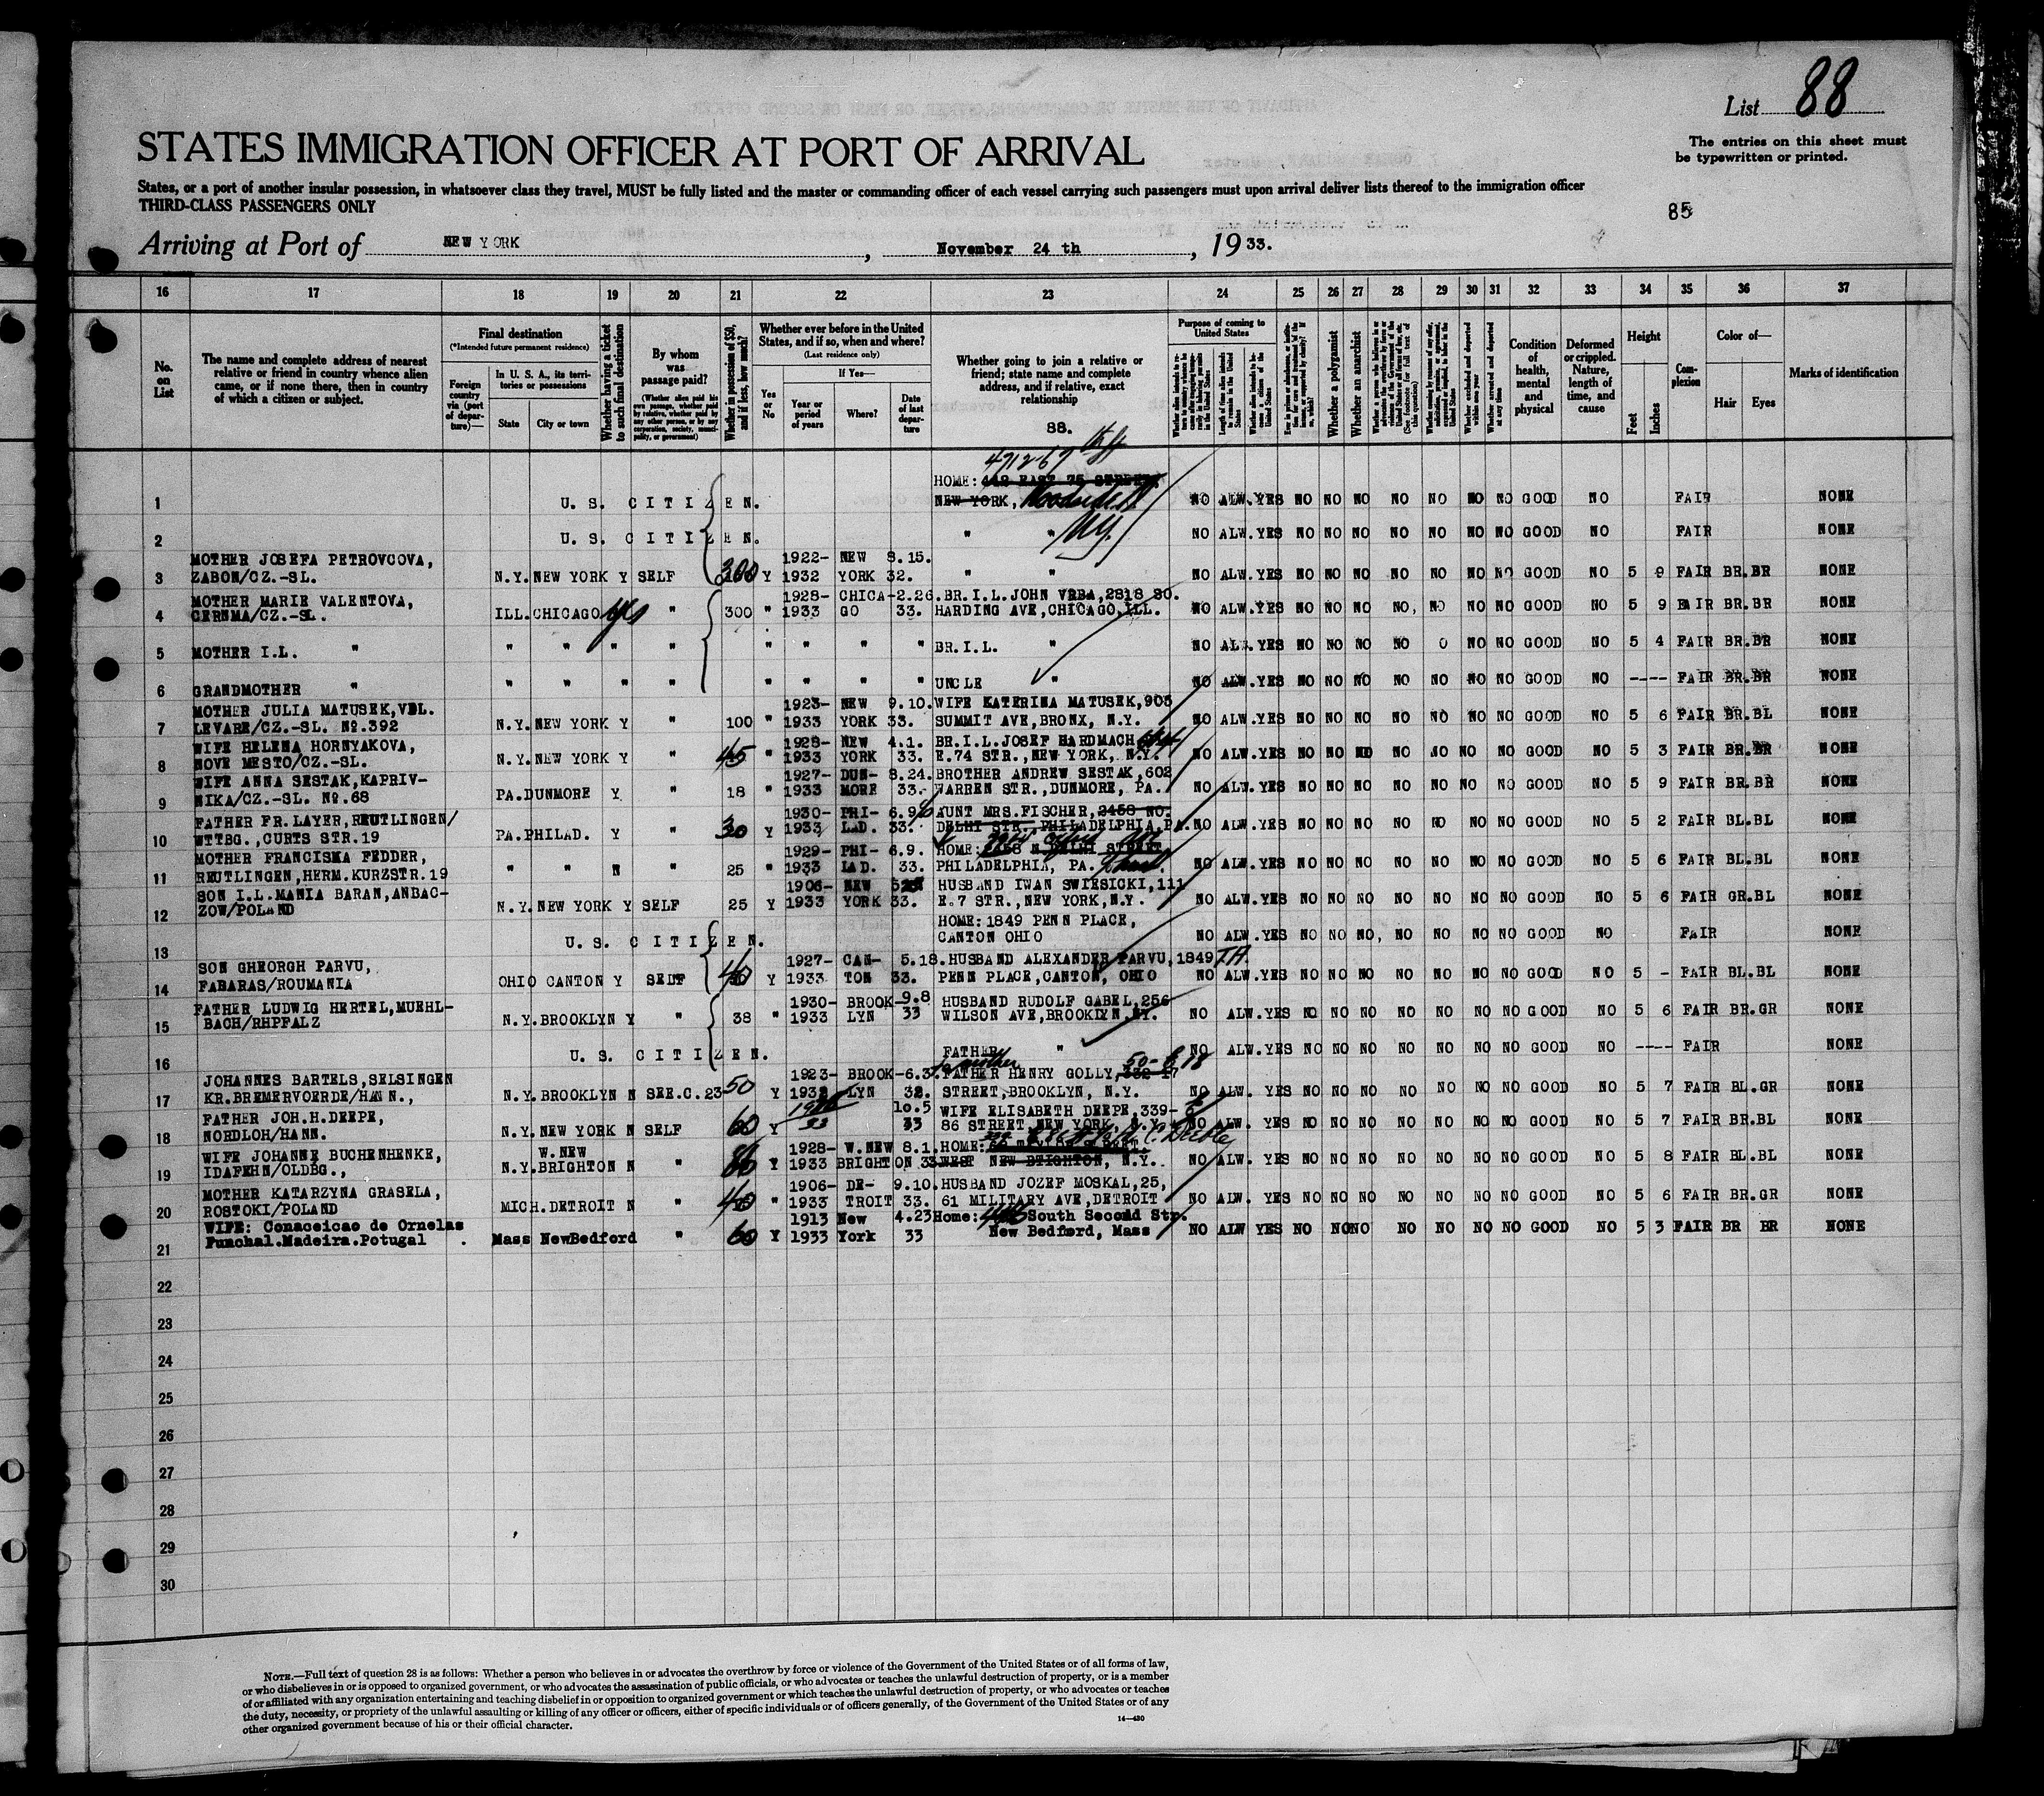 List 88
The entries on this sheet must
be typewritten or printed.
STATES IMMIGRATION OFFICER AT PORT OF ARRIVAL
States, or a port of another insular possession, in whatsoever class they travel, MUST be fully listed and the master or commanding officer of each vessel carrying such passengers must upon arrival deliver lists thereof to the immigration officer
THIRD-CLASS PASSENGERS ONLY
85
Arriving at Port of NEW YORK, November 24 th, 1933.
16 17 18 19 20 21 22 23 24 25 26 27 28 29 30 31 32 33 34 35 36 37
No. on List
The name and complete address of nearest relative or friend in country whence alien came, or if none there, then in country of which a citizen or subject.
Final destination
(*Intended future permanent residence)
Foreign country via (port of departure)—
In U. S. A., its territories or possessions
State City or town
Whether having a ticket to such final destination
By whom was passage paid?
(Whether alien paid his own passage, whether paid by relative, whether paid by any other person, or by any corporation, society, municipality, or government)
Whether in possession of $50, and if less, how much?
Whether ever before in the United States, and if so, when and where?
(Last residence only)
Yes or No
If Yes—
Year or period of years Where? Date of last departure
Whether going to join a relative or friend; state name and complete address, and if relative, exact relationship
88.
Purpose of coming to United States
Length of time alien intends to remain in the United States
Whether a polygamist
Whether an anarchist
Whether arrested and deported at any time
Condition of health, mental and physical
Deformed or crippled. Nature, length of time, and cause
Height
Feet Inches
Complexion
Color of—
Hair Eyes
Marks of identification
HOME: 412 EAST 75 STREET,
1 U. S. CITIZEN. NEW YORK, Woodside NO ALW. YES NO NO NO NO NO NO NO GOOD NO FAIR NONE
2 U. S. CITIZEN. " " N.Y. NO ALW. YES NO NO NO NO NO NO NO GOOD NO FAIR NONE
MOTHER JOSEFA PETROVCOVA, 1922- NEW 8.15.
3 ZABON/CZ.-SL. N.Y. NEW YORK Y SELF 300 Y 1932 YORK 32. " " NO ALW. YES NO NO NO NO NO NO NO GOOD NO 5 9 FAIR BR. BR NONE
MOTHER MARIE VALENTOVA, 1928- CHICA- 2.26. BR.I.L. JOHN VRBA, 2818 SO.
4 CERNMA/CZ.-SL. ILL. CHICAGO yes " 300 " 1933 GO 33. HARDING AVE, CHICAGO, ILL. NO ALW. YES NO NO NO NO, NO NO NO GOOD NO 5 9 FAIR BR. BR NONE
5 MOTHER I.L. " " " " " " " " " BR.I.L. " NO ALW. YES NO NO NO NO O NO NO GOOD NO 5 4 FAIR BR. BR NONE
6 GRANDMOTHER " " " " " " " " " UNCLE " NO ALW. YES NO NO NO NO NO NO NO GOOD NO ---- FAIR BR. BR NONE
MOTHER JULIA MATUSEK, VBL. 1923- NEW 9.10. WIFE KATERINA MATUSEK, 903
7 LEVARE/CZ.-SL. No.392 N.Y. NEW YORK Y " 100 " 1933 YORK 33. SUMMIT AVE, BRONX, N.Y. NO ALW. YES NO NO NO NO NO NO NO GOOD NO 5 6 FAIR BR. BL NONE
WIFE HELENA HORNYAKOVA, 1928- NEW 4.1. BR.I.L. JOSEF HARDMACH
8 NOVE MESTO/CZ.-SL. N.Y. NEW YORK Y 45 " 1933 YORK 33. E.74 STR., NEW YORK, N.Y. NO ALW. YES NO NO NO NO NO NO NO GOOD NO 5 3 FAIR BR. BR NONE
WIFE ANNA SESTAK, KAPRIV- 1927- DUN- 8.24. BROTHER ANDREW SESTAK, 602
9 NIKA/CZ.-SL. No.68 PA. DUNMORE Y " 18 " 1933 MORE 33. WARREN STR., DUNMORE, PA. NO ALW. YES NO NO NO NO NO NO NO GOOD NO 5 9 FAIR BR. BR NONE
FATHER FR. LAYER, REUTLINGEN/ 1930- PHI- 6.9 AUNT MRS. FISCHER, 2458 NO.
10 WTTBG., CURTS STR.19 PA. PHILAD. Y " 30 Y 1933 LAD. 33. DELHI STR. PHILADELPHIA, PA. NO ALW. YES NO NO NO NO NO NO NO GOOD NO 5 2 FAIR BL. BL NONE
MOTHER FRANCISKA FEDDER, 1929- PHI- 6.9. HOME: 2458 N. DELHI STREET
11 REUTLINGEN, HERM. KURZSTR.19 " " N " 25 " 1933 LAD. 33. PHILADELPHIA, PA. NO ALW. YES NO NO NO NO NO NO NO GOOD NO 5 6 FAIR BL. BL NONE
SON I.L. MANIA BARAN, ANBAC- 1906- NEW HUSBAND IWAN SWIESICKI, 111
12 ZOW/POLAND N.Y. NEW YORK Y SELF 25 Y 1933 YORK 33. E.7 STR., NEW YORK, N.Y. NO ALW. YES NO NO NO NO NO NO NO GOOD NO 5 6 FAIR GR. BL NONE
HOME: 1849 PENN PLACE,
13 U. S. CITIZEN. CANTON OHIO NO ALW. YES NO NO NO, NO NO NO NO GOOD NO FAIR NONE
SON GHEORGH PARVU, 1927- CAN- 5.18. HUSBAND ALEXANDER PARVU, 1849
14 FABARAS/ROUMANIA OHIO CANTON Y SELF 40 Y 1933 TON 33. PENN PLACE, CANTON, OHIO NO ALW. YES NO NO NO NO NO NO NO GOOD NO 5 - FAIR BL. BL NONE
FATHER LUDWIG HERTEL, MUEHL- 1930- BROOK- 9.8 HUSBAND RUDOLF GABEL, 256
15 BACH/RHPFALZ N.Y. BROOKLYN Y " 38 " 1933 LYN 33 WILSON AVE, BROOKLYN N.Y. NO ALW. YES NO NO NO NO NO NO NO GOOD NO 5 6 FAIR BR. GR NONE
16 U. S. CITIZEN. FATHER " NO ALW. YES NO NO NO NO NO NO NO GOOD NO ---- FAIR NONE
to mother
JOHANNES BARTELS, SELSINGEN 1923- BROOK- 6.3. FATHER HENRY GOLLY,
17 KR. BREMERVOERDE/HANN., N.Y. BROOKLYN N SEE.C.23 50 Y 1932 LYN 32. STREET, BROOKLYN, N.Y. NO ALW. YES NO NO NO NO NO NO NO GOOD NO 5 7 FAIR BL. GR NONE
FATHER JOH.H. DEEPE, 10.5 WIFE ELISABETH DEEPE, 339-
18 NORDLOH/HANN. N.Y. NEW YORK N SELF 60 Y 33 33 86 STREET, NEW YORK, N.Y. NO ALW. YES NO NO NO NO NO NO NO GOOD NO 5 7 FAIR BR. BL NONE
WIFE JOHANNE BUCHENHENKE, W.NEW 1928- W.NEW 8.1. HOME:
19 IDAFEHN/OLDBG., N.Y. BRIGHTON N " Y 1933 BRIGHTON 33. WEST NEW BTIGHTON, N.Y. NO ALW. YES NO NO NO NO NO NO NO GOOD NO 5 8 FAIR BL. BL NONE
MOTHER KATARZYNA GRASELA, 1906- DE- 9.10. HUSBAND JOZEF MOSKAL, 25,
20 ROSTOKI/POLAND MICH. DETROIT N " 40 " 1933 TROIT 33. 61 MILITARY AVE, DETROIT NO ALW. YES NO NO NO NO NO NO NO GOOD NO 5 6 FAIR BR. GR NONE
WIFE: Conaceicao de Ornelas 1913 New 4.23 Home: South Second Str.
21 Funchal.Madeira.Potugal . Mass NewBedford " 60 Y 1933 York 33 New Bedford, Mass NO ALW YES NO NO NO NO NO NO NO GOOD NO 5 3 FAIR BR BR NONE
22
23
24
25
26
27
28
29
30
NOTE.—Full text of question 28 is as follows: Whether a person who believes in or advocates the overthrow by force or violence of the Government of the United States or of all forms of law,
or who disbelieves in or is opposed to organized government, or who advocates the assassination of public officials, or who advocates or teaches the unlawful destruction of property, or is a member
of or affiliated with any organization entertaining and teaching disbelief in or opposition to organized government or which teaches the unlawful destruction of property, or who advocates or teaches
the duty, necessity, or propriety of the unlawful assaulting or killing of any officer or officers, either of specific individuals or of officers generally, of the Government of the United States or of any
other organized government because of his or their official character.
14—430